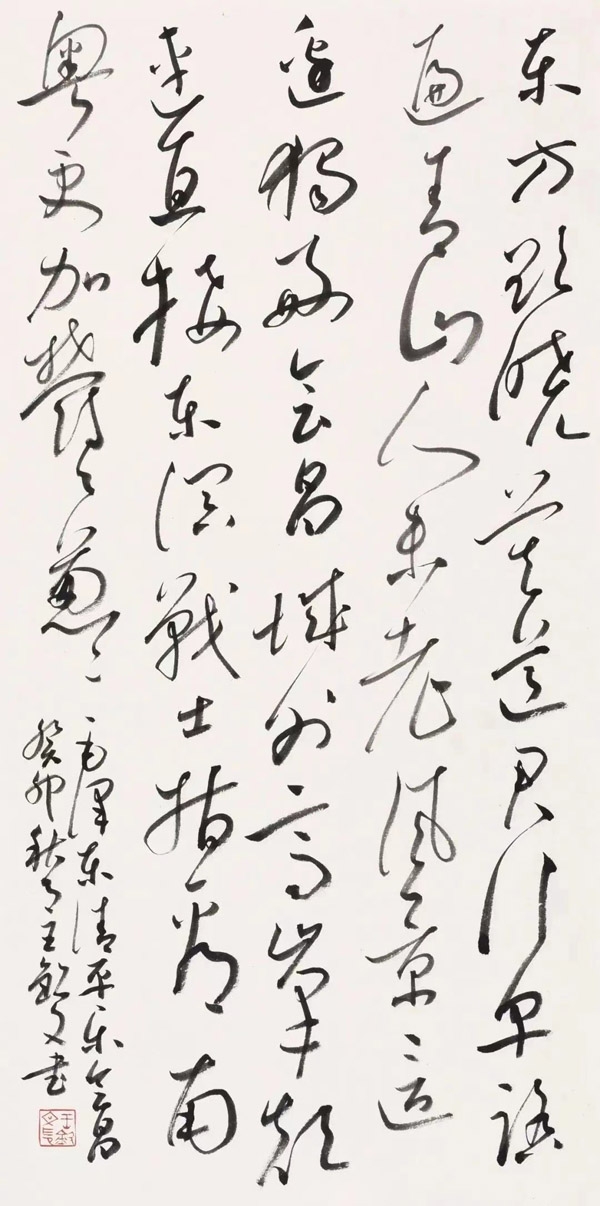 东方欲晓莫道君行早踏
遍青山人未老风景这
边獨好会昌城外高峯颠
连直接东溟戰士指看南
粤更加鬱々葱々
毛泽东清平乐会昌
癸卯秋王文书